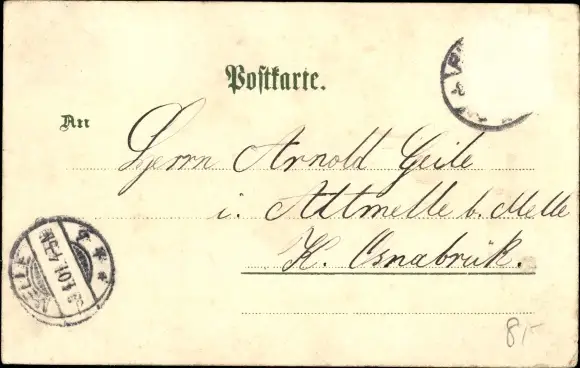 Postkarte.
An
Herrn Arnold Geile
i. Altmelle b. Melle
K. Osnabrük.
MELLE
8,-